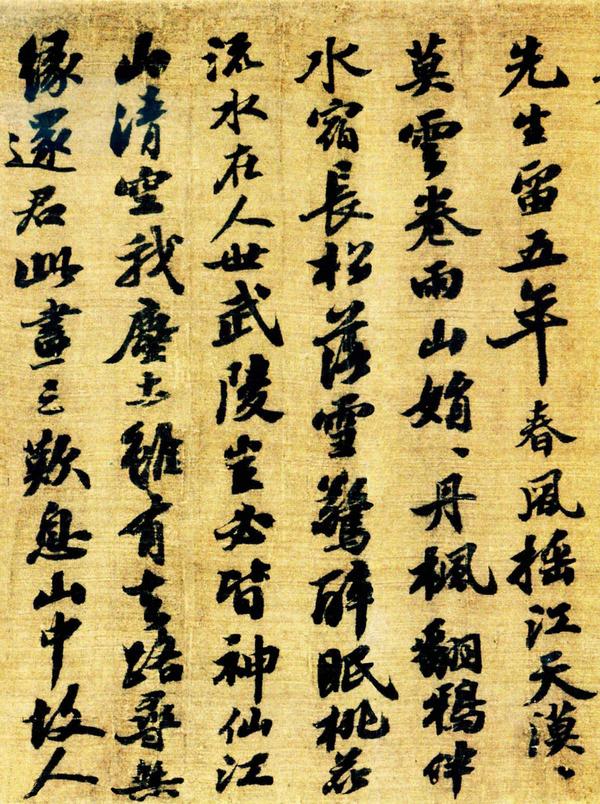 先生留五年春風搖江天漠〻
莫雲卷雨山娟〻丹楓翻鴉伴
水宿長松落雪驚醉眠桃花
流水在人世武陵豈必皆神仙江
山清空我塵土雖有去路尋無
緣還君此畫三歎息山中故人